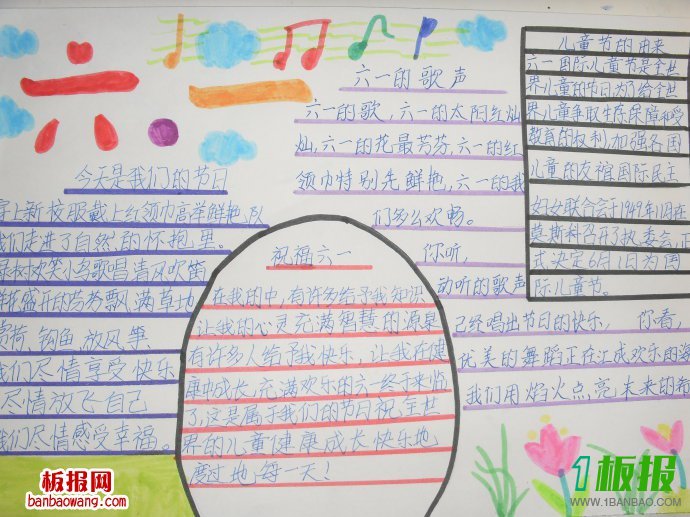 六一
六一的歌声
六一的歌,六一的太阳红灿
灿,六一的花最芳芬,六一的红
领巾特别先鲜艳,六一的我
们多么欢畅。
你听,
动听的歌声
已经唱出节日的快乐, 你看,
优美的舞蹈正在汇成欢乐的海
我们用焰火点亮未来的希
儿童节的由来
六一国际儿童节是全世
界儿童的节日为了给全世
界儿童争取生存保障和受
教育的权利,加强各国
儿童的友谊国际民主
妇女联合会于1949年11月在
莫斯科召开执委会,正
式决定6月1日为国
际儿童节。
今天是我们的节日
穿上新校服戴上红领巾高举鲜艳队
我们走进了自然的怀抱里。
欢笑小鸟歌唱清风吹笛
盛开的芳芳飘满草地
钓鱼,放风筝
我们尽情享受快乐
尽情放飞自己
我们尽情感受幸福。
祝福六一
在我的中,有许多给予我知识
让我的心灵充满智慧的源泉
有许多人给予我快乐,让我在健
康中成长,充满欢乐的六一终于来临
了,这是属于我们的节日祝全世
界的儿童健康成长快乐地
度过地每一天!
板报网
banbaowang.com
1板报
WWW.1BANBAO.COM